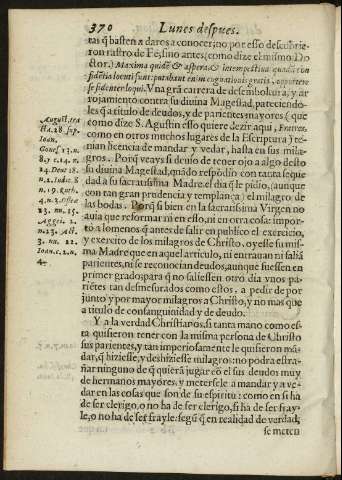 370 Lunes despues.
tas q̃ basten a daros a conocer; no por esso descubrie-
ron rastro de Fè, sino antes (como dize el mismo Do
ctor.) Maxima quidẽ & aspera, & intempestiua quadã con
fidẽtia locuti sunt: putabant enim cognationis gratia, oportere
se fidenter loqui. Vna grã carrera de desemboltura, y ar
rojamiento contra su diuina Magestad, pareciendo-
les q̃ a titulo de deudos, y de parientes mayores (que
como dize S. Agustin esso quiere dezir aqui, Fratres,
como en otros muchos lugares de la Escriptura) te-
nian licencia de mandar y vedar, hasta en sus mila-
gros. Porq̃ veays si deuio de tener ojo a algo desto
su diuina Magestad, quãdo respõdio con tanta seque
dad a su sacratissima Madre, el dia q̃ le pidio, (aunque
con tan gran prudencia y templança) el milagro de
las bodas. Porq̃ si bien en la sacratissima Virgen no
auia que reformar ni en esso, ni en otra cosa: impor-
tò a lo menos q̃ antes de salir en publico el exercicio,
y exercito de los milagros de Christo, oyesse su mis-
ma Madre que en aquel articulo, ni entrauan ni saliã
parientes, ni se reconocian deudos, aunque fuessen en
primer grado: para q̃ no saliessen otro dia vnos pa-
riẽtes tan desmesurados como estos, a pedir de por
junto y por mayor milagros a Christo, y no mas que
a titulo de consanguinidad y de deudo.
Y a la verdad Christianos, si tanta mano como es-
ta quisieron tener con la misma persona de Christo
sus parientes, y tan imperiosamente le quisieron mã-
dar, q̃ hiziesse, y deshiziesse milagros: no podra estra-
ñar ninguno de q̃ quierã jugar cõ el sus deudos muy
de hermanos mayores, y meterse a mandar y a ve-
dar en las cosas que son de su espiritu: como en si ha
de ser clerigo, o no ha de ser clerigo, si ha de ser fray-
le, o no ha de ser frayle: segũ q̃ en realidad de verdad,
se meten
August. tra
cta. 28. sup.
Ioan.
Genes. 13. n.
8. y c. 14. n.
24. Deut. 18.
n. 2. Iudic. 8
n. 19. Ruth.
4. n. 3. Osee
13. nu. 15.
Aggei. 2.
n. 23. Act.
3. nu. 22.
Ioan. c. 2. n.
4.